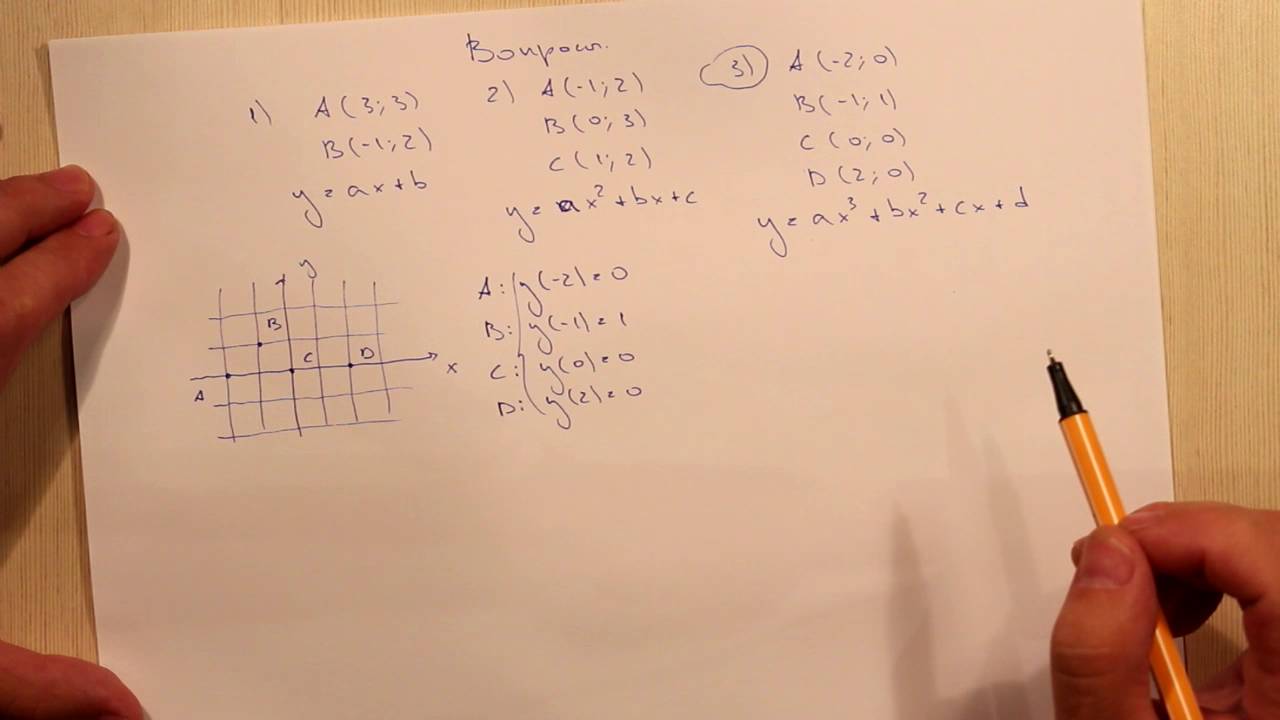 Вопросы.
1) A (3; 3)
B (-1; 2)
y = ax + b
2) A (-1; 2)
B (0; 3)
C (1; 2)
y = ax² + bx + c
3) A (-2; 0)
B (-1; 1)
C (0; 0)
D (2; 0)
y = ax³ + bx² + cx + d
y
B
C
D
x
A
A: y(-2) = 0
B: y(-1) = 1
C: y(0) = 0
D: y(2) = 0